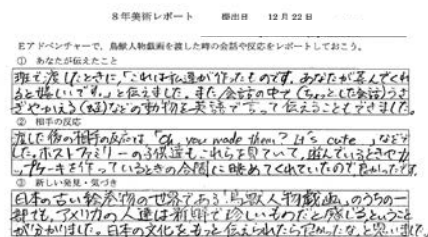 8年美術レポート 提出日 12月22日
Eアドベンチャーで、鳥獣人物戯画を渡した時の会話や反応をレポートしておこう。
① あなたが伝えたこと
班で渡したときに、「これは私達が作ったものです。あなたが喜んでくれ
ると嬉しいです。」と伝えました。また、会話の中で(ちょっとした会話)うさ
ぎやかえる(など)などの動物を英語で言って伝えることもできました。
② 相手の反応
渡した後の相手の反応は、「Oh, you made them? It's cute」などで
した。ホストファミリーの子供達も、これらを見ていて、遊んでいるときやカ
ップケーキを作っているときの合間に眺めてくれていたので良かったです。
③ 新しい発見・気づき
日本の古い絵巻物の世界である「鳥獣人物戯画」のうちの一
部でも、アメリカの人達は新鮮で珍しいものだと感じるということ
が分かりました。日本の文化をもっと伝えられたら良かったな、と思いました。